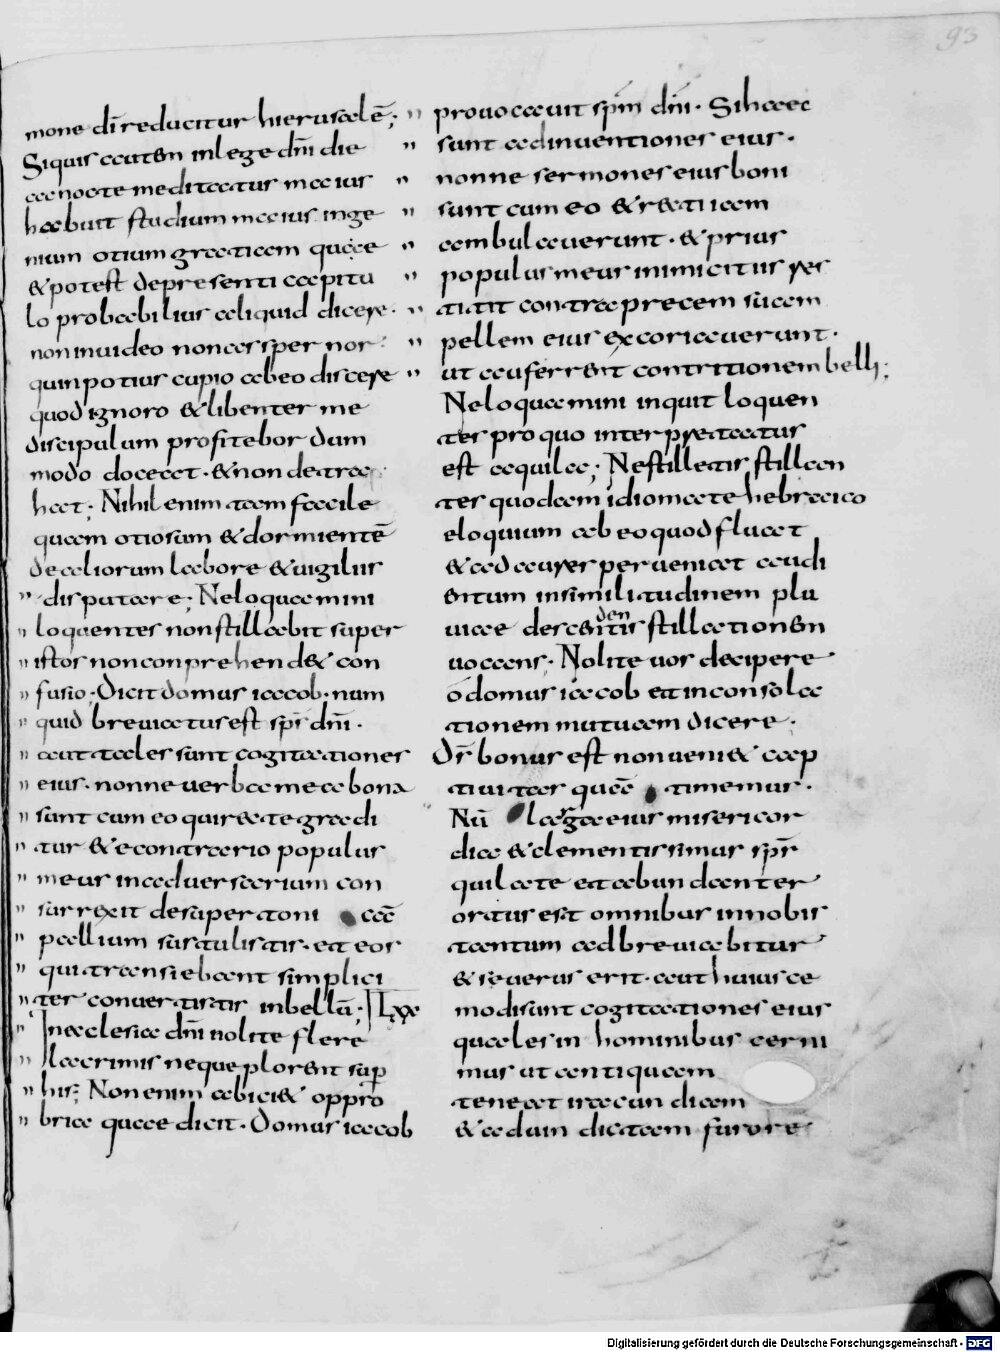 93
mone dī reducitur hierusalē;
Siquis autem in lege dn̄i die
ac nocte meditatur magis
habuit studium magis inge
nium otium gratiam quae
& potest de presenti capitu
lo probabilius aliquid dicere.
non inuideo non aspernor.
quin potius cupio ab eo discere
quod ignoro & libenter me
discipulum profitebor dum
modo doceat. & non detra
hat; Nihil enim tam facile
quam otiosum & dormientē
de aliorum labore & uigiliis
" disputare; Ne loquamini
" loquentes non stillabit super
" istos non conprehend& con
" fusio; Dicit domus iacob. num
" quid breuiatus est sp̄s dn̄i.
" aut tales sunt cogitationes
" eius. nonne uerba mea bona
" sunt cum eo qui recte gradi
" tur & e contrario populus
" meus in aduersarium con
" surrexit desuper toni cac̄
" pallium sustulistis. et eos
" qui transiebant simplici
" ter conuertistis in bellū; LXX
" In ecclesia dn̄i nolite flere
" lacrimis neque plorent sup
" his; Non enim abici& oppro
" bria quae dicit. Domus iacob
" prouocauit sp̄m dn̄i. Si haec
" sunt adinuentiones eius.
" nonne sermones eius boni
" sunt cum eo & recti iam
" ambulauerunt. & prius
" populus meus inimicitiis res
" titit contra precem suam
" pellem eius excoriauerunt.
" ut auferrent contritionem belli;
Ne loquamini inquit loquen
ter pro quo interpretatus
est aquila; Ne stilletis stillan
ter quod cum idiomate hebraico
eloquium ab eo quod fluat
& ad aures perueniat audi
entum in similitudinem plu
uiae descendentis stillationem
uocans. Nolite uos decipere
o domus iacob et in consola
tionem mutuam dicere.
Ds̄ bonus est non ueni& cap
tiuitas quā timemus.
Nū larga eius misericor
dia & clementissimus sp̄s
qui late et abundanter
ortus est omnibus in nobis
tantum adbreuiabitur
& seuerus erit. aut huiusce
modi sunt cogitationes eius
quales in hominibus cerni
mus ut antiquam
teneat iracundiam
& ad uindictam furore
Digitalisierung gefördert durch die Deutsche Forschungsgemeinschaft - DFG